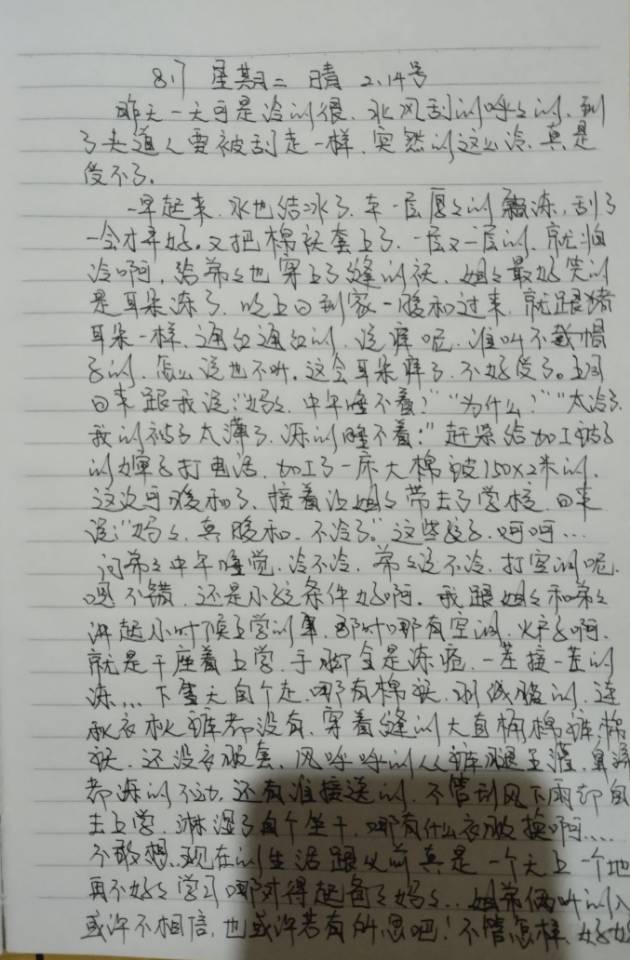 8.17 星期二 晴 2.14号
昨天一天可是冷的很、北风刮的呼々的、到
了夹道人要被刮走一样、突然的这么冷、真是
受不了。
一早起来、水也结冰了、车一层厚々的冻、刮了
一会才弄好。又把棉袄套上了、一层又一层的、就怕
冷啊、给弟々也穿上了缝的袄、姐々最好笑的
是耳朵冻了、晚上回到家一暖和过来、就跟猪
耳朵一样、通红通红的、说痒呢、谁叫不戴帽
子的、怎么说也不听。这会耳朵痒了、不好受了。
回来跟我说:"妈々、中午睡不着!""为什么?""太冷了
我的被子太薄了、冻的睡不着:"赶紧给加工被子
的婶子打电话、加工了一床大棉被150×2米的、
这次可暖和了、接着让姐々带去了学校、回来
说:"妈々、真暖和、不冷了。"这些孩子、呵呵…
问弟々中午睡觉、冷不冷、弟々说不冷、打空调呢、
嗯不错、还是小孩条件好啊。我跟姐々和弟々
讲起小时候上学的事、那时哪有空调、炉子啊、
就是干座着上学、手脚全是冻疮、一茬接一茬的
冻…下雪天自个走、哪有棉袄、羽绒服的、连
秋衣秋裤都没有、穿着缝的大直桶棉裤、棉
袄、还没衣服套、风呼呼的从裤腿里灌、鼻涕
都冻的不动、还有谁接送的、不管刮风下雨都自
去上学、淋湿了自个坐干、哪有什么衣服换啊…
不敢想、现在的生活跟以前真是一个天上一个地
再不好々学习哪对得起爸々妈々..姐弟俩听的入
或许不相信、也或许若有所思吧!不管怎样、好好